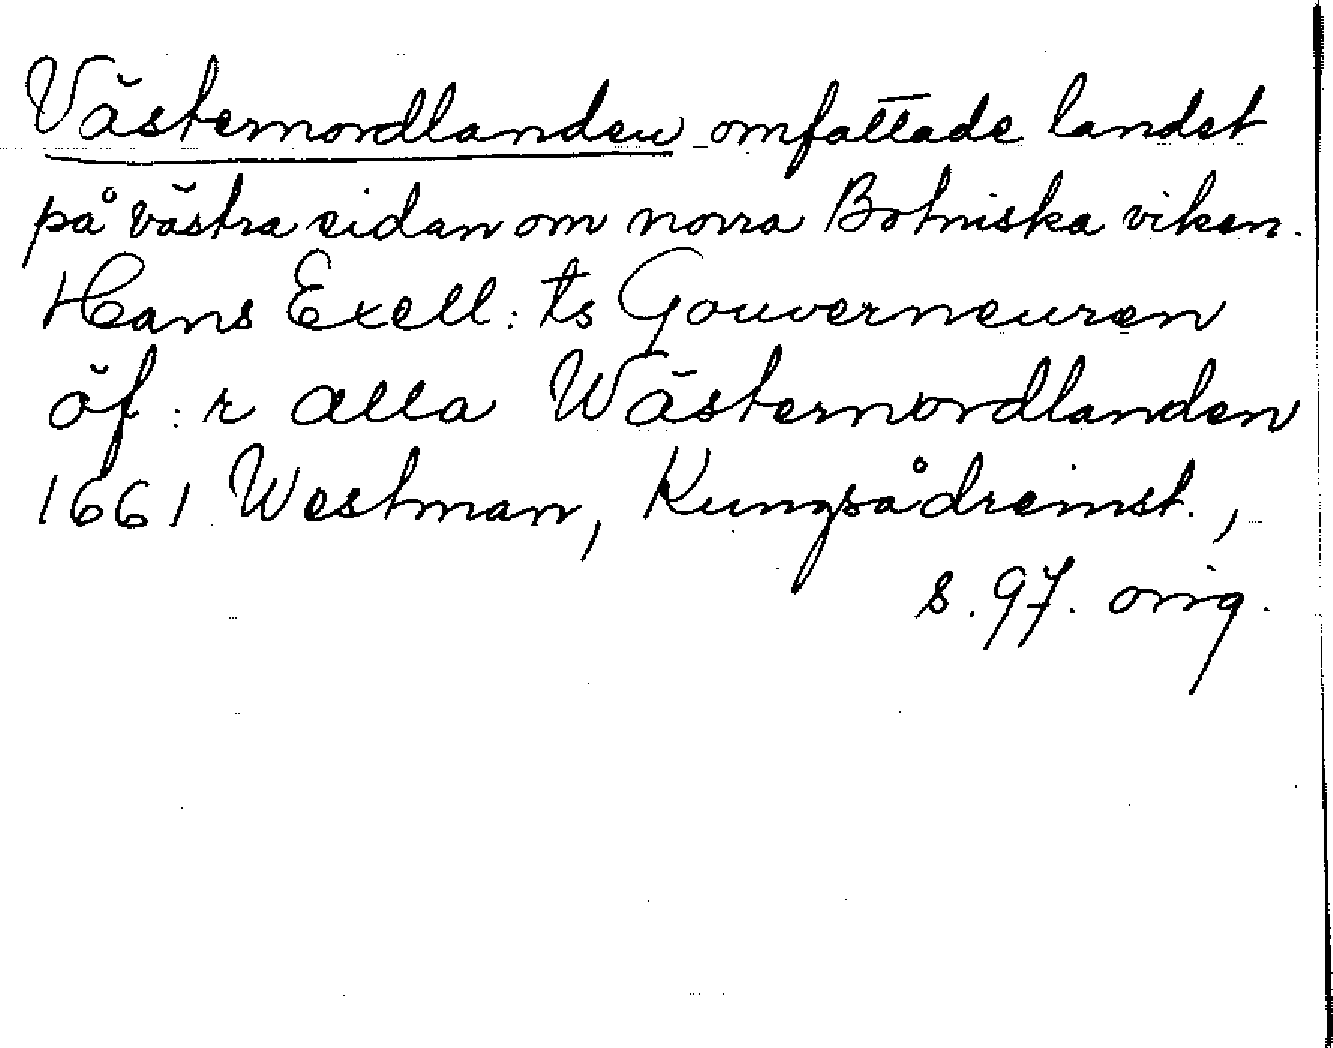 Västernordlanden omfattade landet
på västra sidan om norra Botniska viken.
Hans Excell:ts Gouverneuren
öf:r alla Wästernordlanden
1661 Westman, Kungsådreinst.,
s. 97. orig.